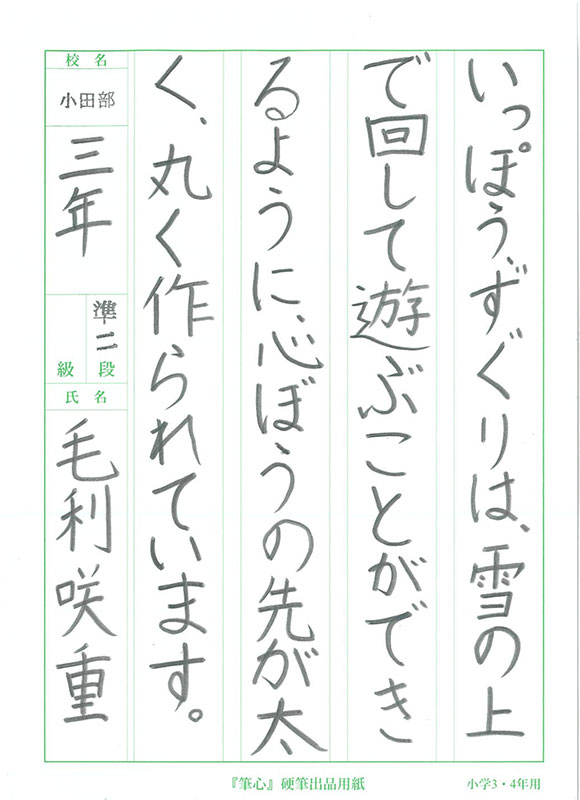 いっぽう、ずぐりは、雪の上
で回して遊ぶことができ
るように、心ぼうの先が太
く、丸く作られています。
校名
小田部
三年
準二段
級
氏名
毛利咲重
『筆心』硬筆出品用紙
小学3・4年用